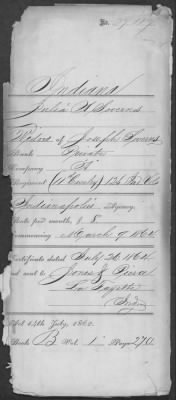 No. 27,117
Indiana
Julia A Sovems
Widow of Joseph Sovems
Rank Private
Company "H"
Regiment (11 Cavalry) 126 Ind Vols
Indianapolis Agency,
Rate per month, $ 8
Commencing March 9 1864
Certificate dated July 26 1864
and sent to Jones & Pierce
La Fayette
Ind
Act 14th July, 1862.
Book B Vol. 1 Page 270